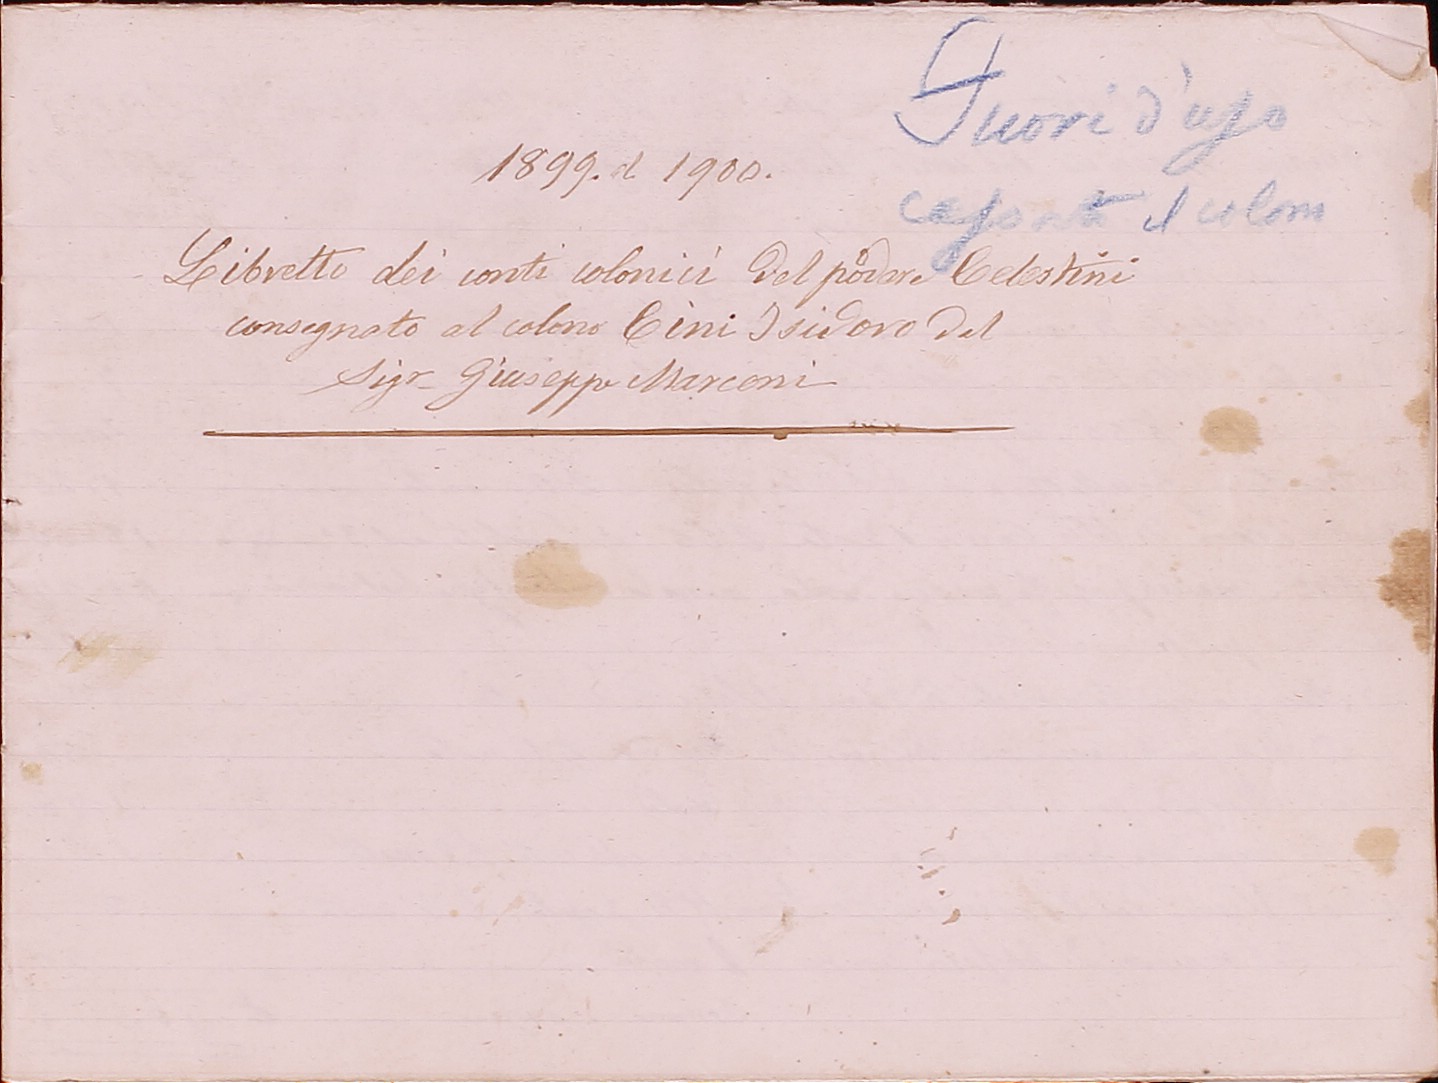 Fuori d'uso
cessato il colono
1899. al 1900.
Libretto dei conti colonici del podere Celestini
consegnato al colono Cini Isidoro dal
Sigr Giuseppe Marconi